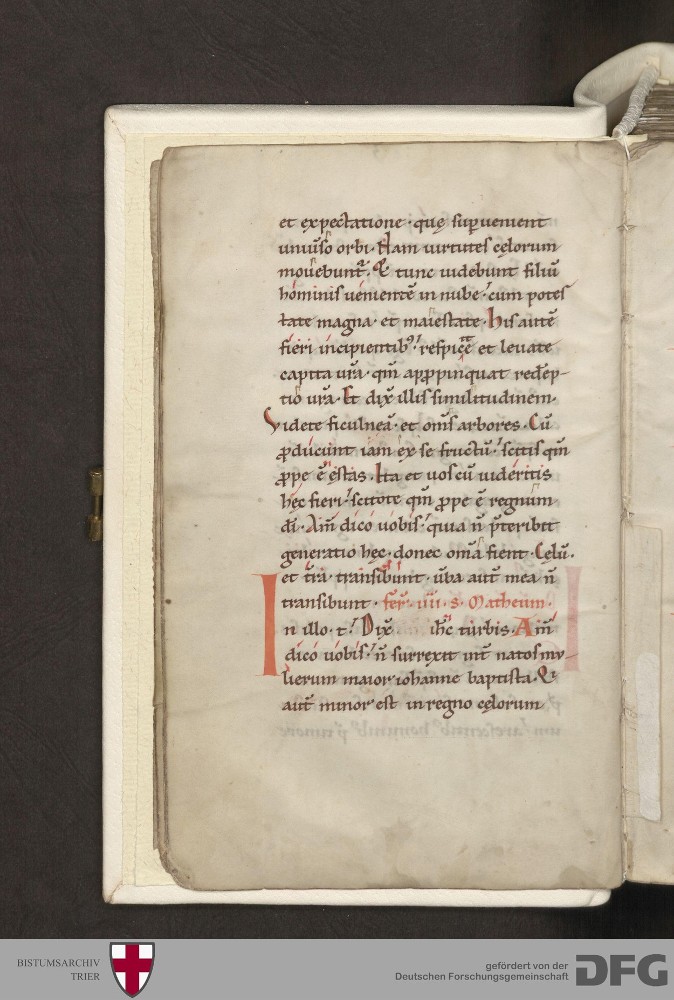 et expectatione · quę supuenient
uniũso orbi · Nam uirtutes cęlorum
mouebunt᷑ · Et tunc uidebunt filiũ
hominis uenientẽ in nube · cum potes
tate magna · et maiestate · his autẽ
fieri incipientib; respicite et leuate
capita ur̃a · qm̃ apppinquat redẽp-
tio ur̃a · Et dix̃ illis similitudinem ·
Videte ficulneã · et om̃s arbores · Cũ
pducunt iam ex se fructũ · scitis qm̃
ppe ẽ ęstas · Ita et uos cũ uideritis
hęc fieri · scitote qm̃ ppe ẽ regnum
dĩ · Am̃ dico uobis · quia ñ p̃teribit
generatio hęc · donec om̃a fient · Cęlũ ·
et t̃ra transibunt · ũba aut̃ mea ñ
transibunt · fer̃ · iiii · s · Matheum ·
In illo · t · Dix̃ ih̃c turbis · Am̃
dico uobis · ñ surrexit int̃ natos mu-
lierum maior iohanne baptista · Qi
aut̃ minor est in regno cęlorum
BISTUMSARCHIV
TRIER
gefördert von der
Deutschen Forschungsgemeinschaft
DFG